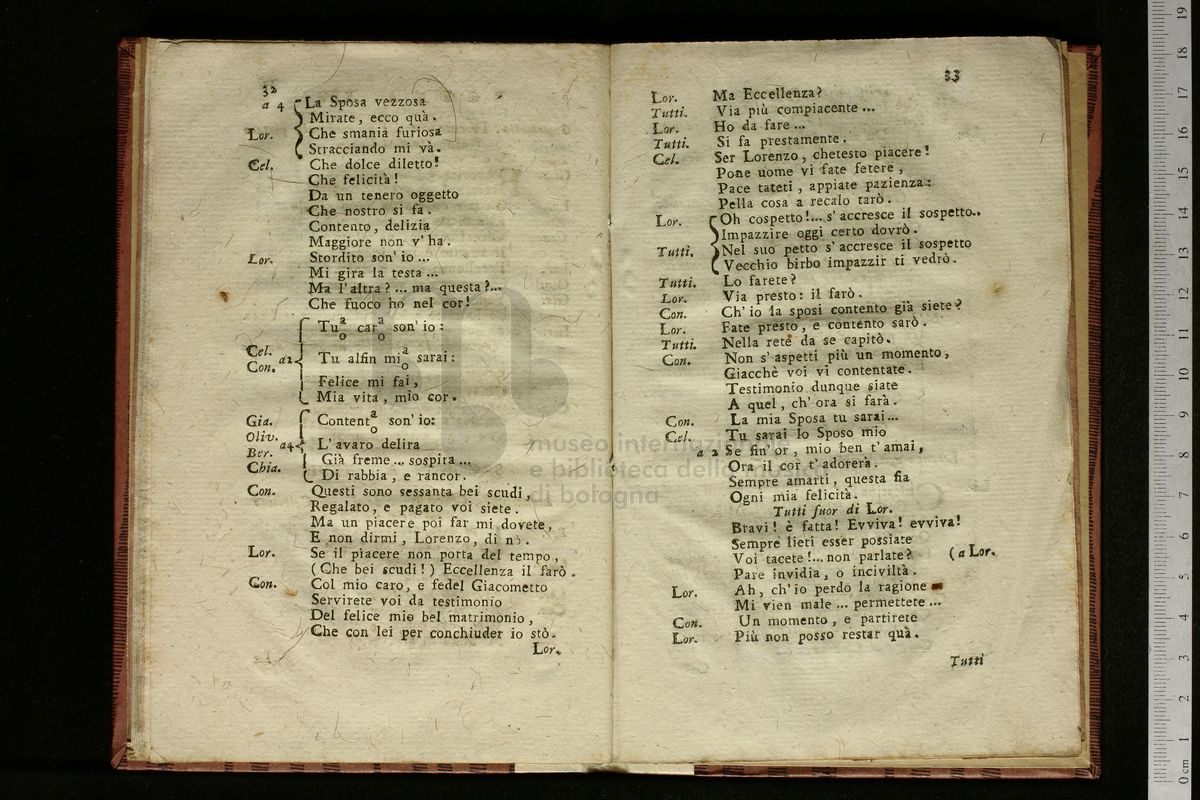 32
a 4 La Sposa vezzosa
Mirate, ecco quà.
Lor. Che smania furiosa
Stracciando mi và.
Cel. Che dolce diletto!
Che felicità!
Da un tenero oggetto
Che nostro si fa.
Contento, delizia
Maggiore non v'ha.
Lor. Stordito son' io ...
Mi gira la testa ...
Ma l'altra? ... ma questa?...
Che fuoco ho nel cor!
Cel. Con. a2 Tu a/o car a/o son' io:
Tu alfin mi a/o sarai:
Felice mi fai,
Mia vita, mio cor.
Gia. Oliv. Ber. Chia. a4 Content a/o son' io:
L'avaro delira
Già freme ... sospira ...
Di rabbia, e rancor.
Con. Questi sono sessanta bei scudi,
Regalato, e pagato voi siete.
Ma un piacere poi far mi dovete,
E non dirmi, Lorenzo, di nò.
Lor. Se il piacere non porta del tempo,
(Che bei scudi!) Eccellenza il farò.
Con. Col mio caro, e fedel Giacometto
Servirete voi da testimonio
Del felice mio bel matrimonio,
Che con lei per conchiuder io stò.
Lor.
33
Lor. Ma Eccellenza?
Tutti. Via più compiacente ...
Lor. Ho da fare ...
Tutti. Si fa prestamente.
Cel. Ser Lorenzo, chetesto piacere!
Pone uome vi fate fetere,
Pace tateti, appiate pazienza:
Pella cosa a recalo tarò.
Lor. Oh cospetto!... s'accresce il sospetto..
Impazzire oggi certo dovrò.
Tutti. Nel suo petto s'accresce il sospetto
Vecchio birbo impazzir ti vedrò.
Tutti. Lo farete?
Lor. Via presto: il farò.
Con. Ch'io la sposi contento già siete?
Lor. Fate presto, e contento sarò.
Tutti. Nella rete da se capitò.
Con. Non s'aspetti più un momento,
Giacchè voi vi contentate.
Testimonio dunque siate
A quel, ch'ora si farà.
Con. La mia Sposa tu sarai...
Cel. Tu sarai lo Sposo mio
a 2 Se fin'or, mio ben t'amai,
Ora il cor t'adorerà.
Sempre amarti, questa fia
Ogni mia felicità.
Tutti fuor di Lor.
Bravi! è fatta! Evviva! evviva!
Sempre lieti esser possiate
Voi tacete!... non parlate? (a Lor.
Pare invidia, o inciviltà.
Lor. Ah, ch'io perdo la ragione
Mi vien male ... permettete ...
Con. Un momento, e partirete
Lor. Più non posso restar quà.
Tutti
museo internazionale
e biblioteca della musica
di bologna
0 cm 1 2 3 4 5 6 7 8 9 10 11 12 13 14 15 16 17 18 19